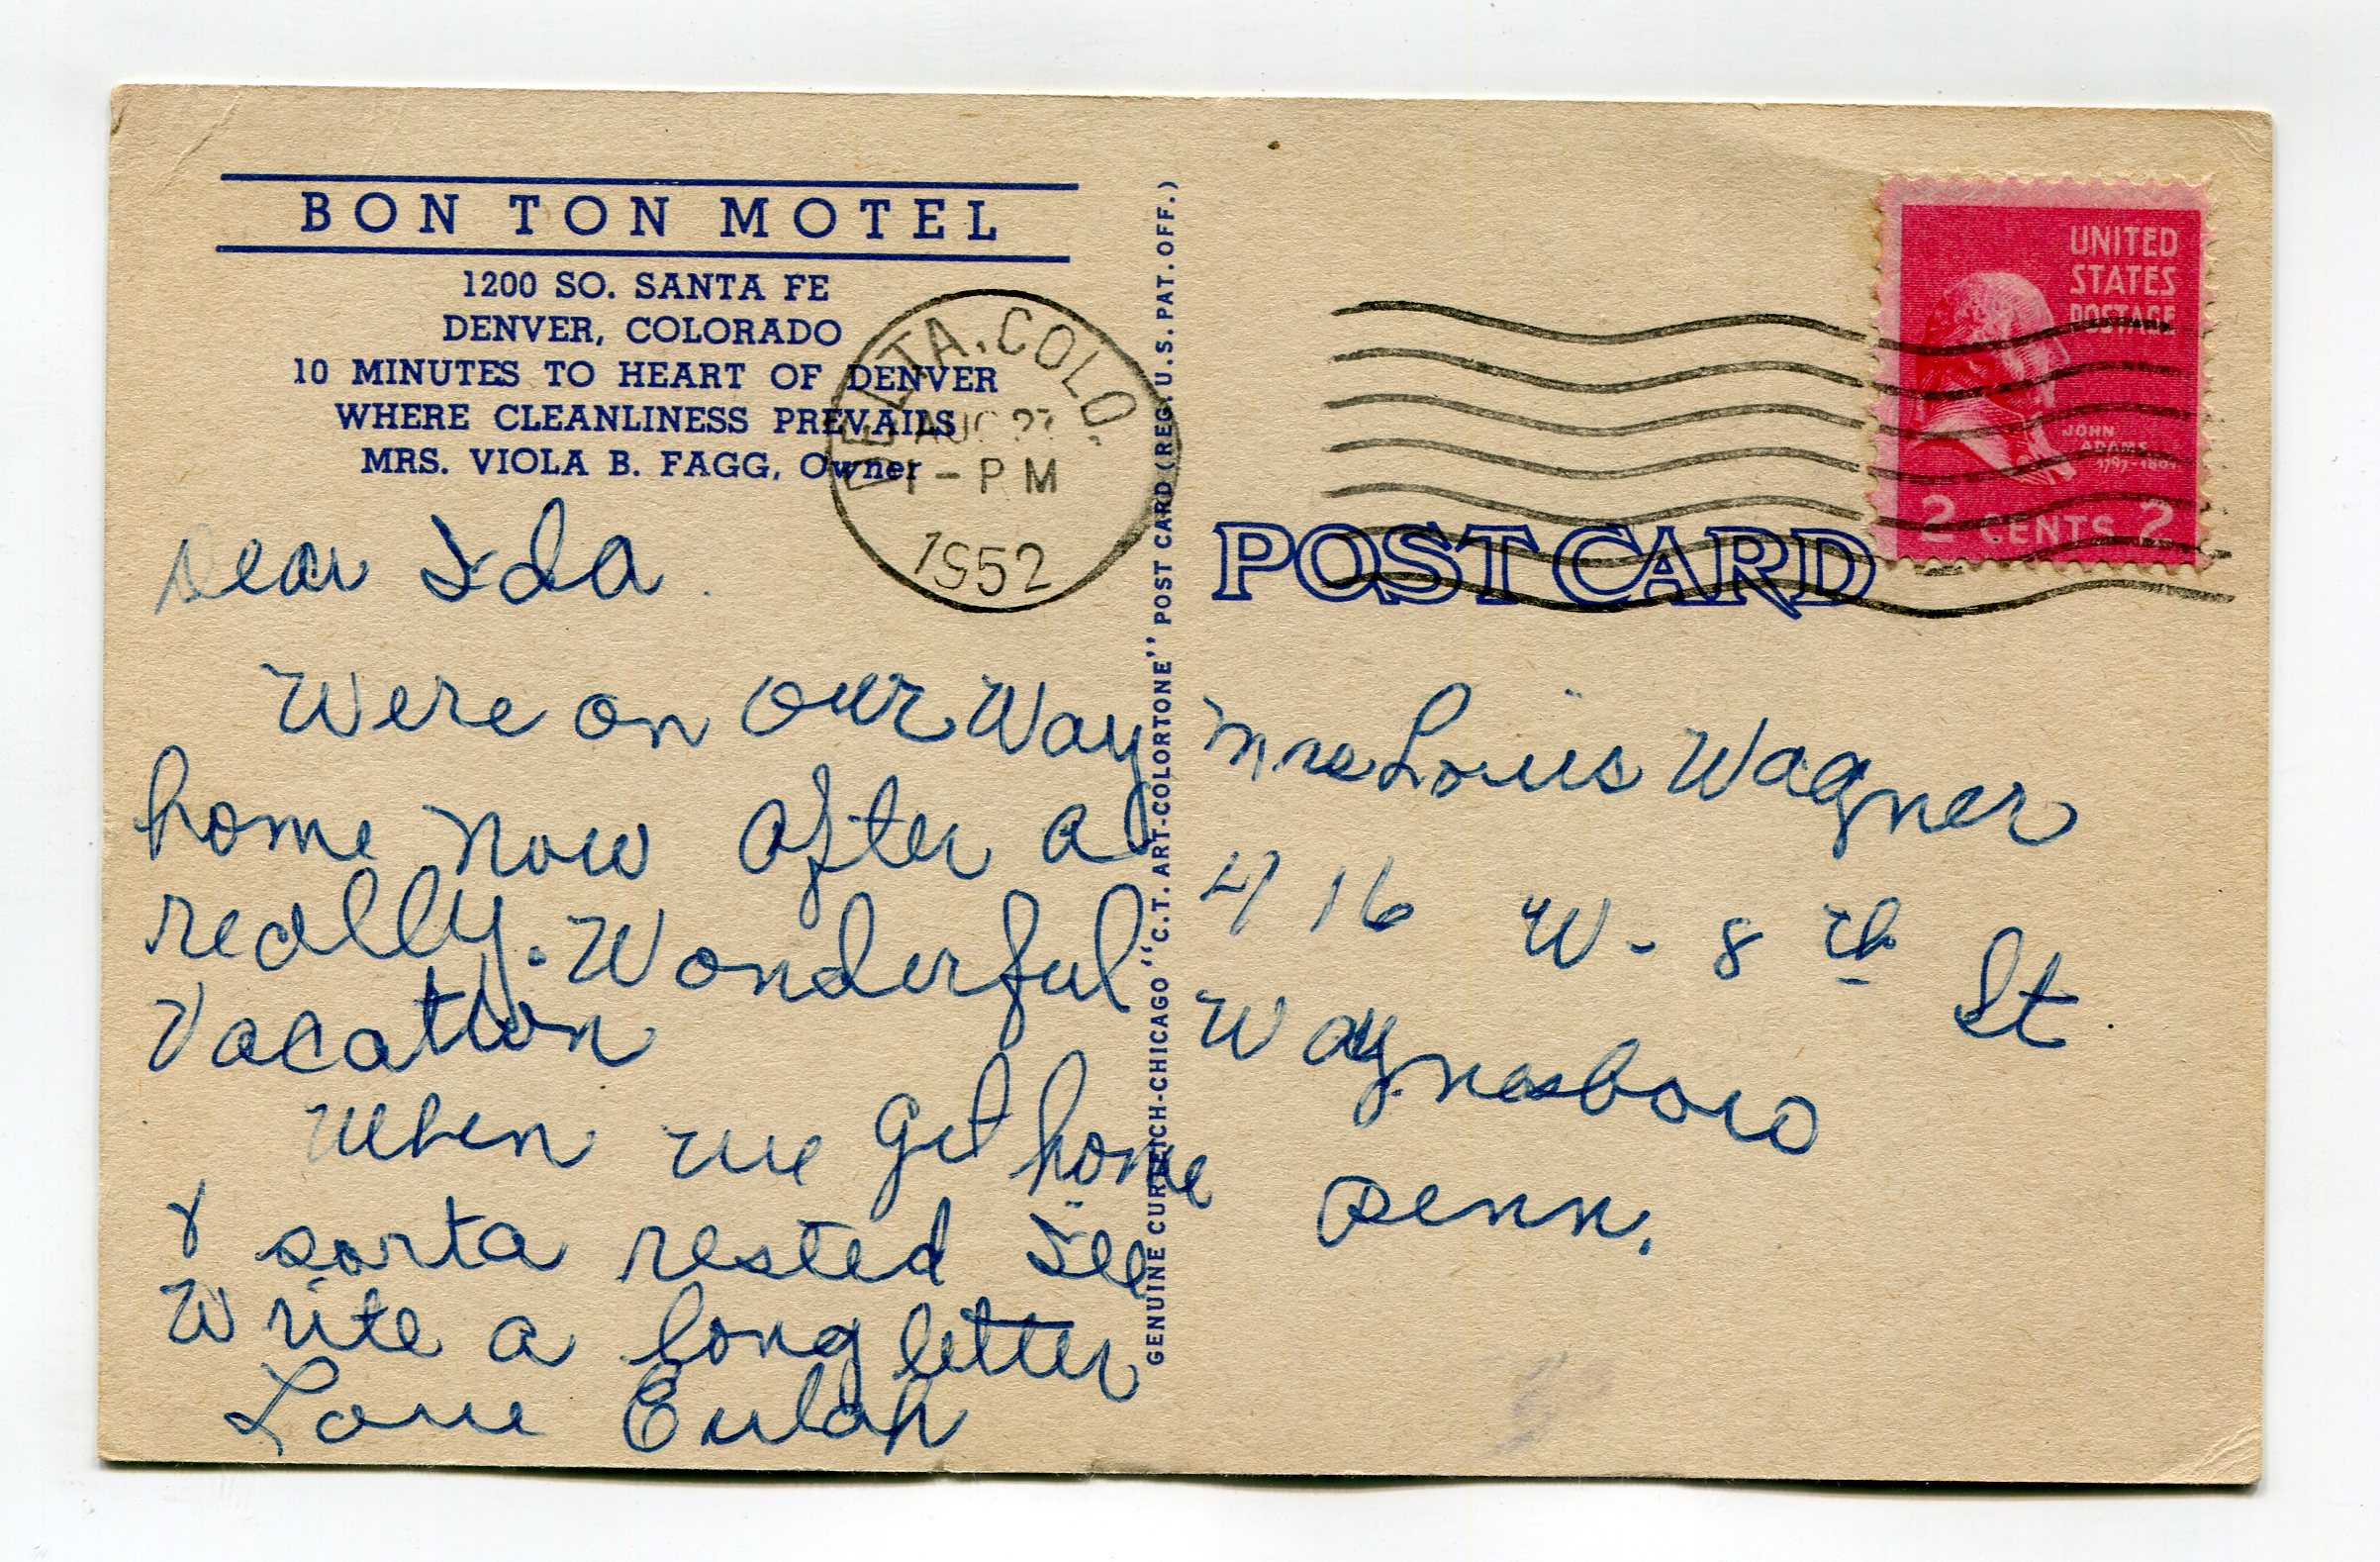 BON TON MOTEL
1200 SO. SANTA FE
DENVER, COLORADO
10 MINUTES TO HEART OF DENVER
WHERE CLEANLINESS PREVAILS
MRS. VIOLA B. FAGG, Owner
DELTA, COLO.
AUG 27
1 - PM
1952
UNITED
STATES
POSTAGE
JOHN
ADAMS
1797-1801
2 CENTS 2
POST CARD
GENUINE CURTEICH-CHICAGO "C.T. ART-COLORTONE" POST CARD (REG. U.S. PAT. OFF.)
Dear Ida.
Were on our Way
home now after a
really. Wonderful
Vacation
When we get home
& sorta rested Ill
Write a long letter
Love Eulah
Mrs Louis Wagner
416 W - 8th St.
Waynesboro
Penn.